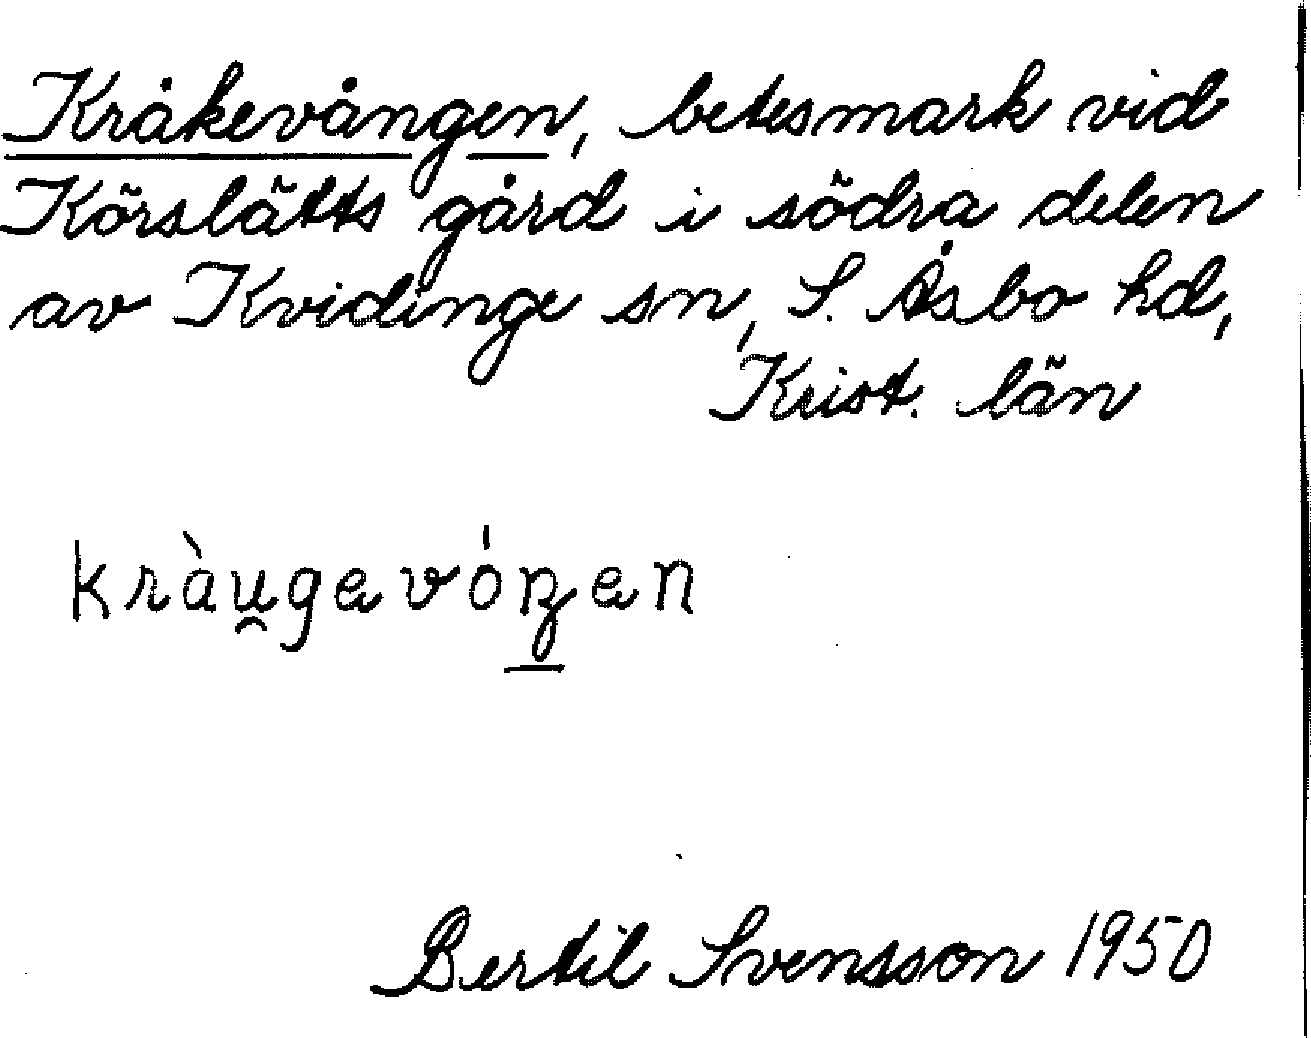 Kråkevången, betesmark vid
Körslätts gård i södra delen
av Kvidinge sn, S. Åsbo hd,
Krist. län
kràu̯gavóŋen
Bertil Svensson 1950